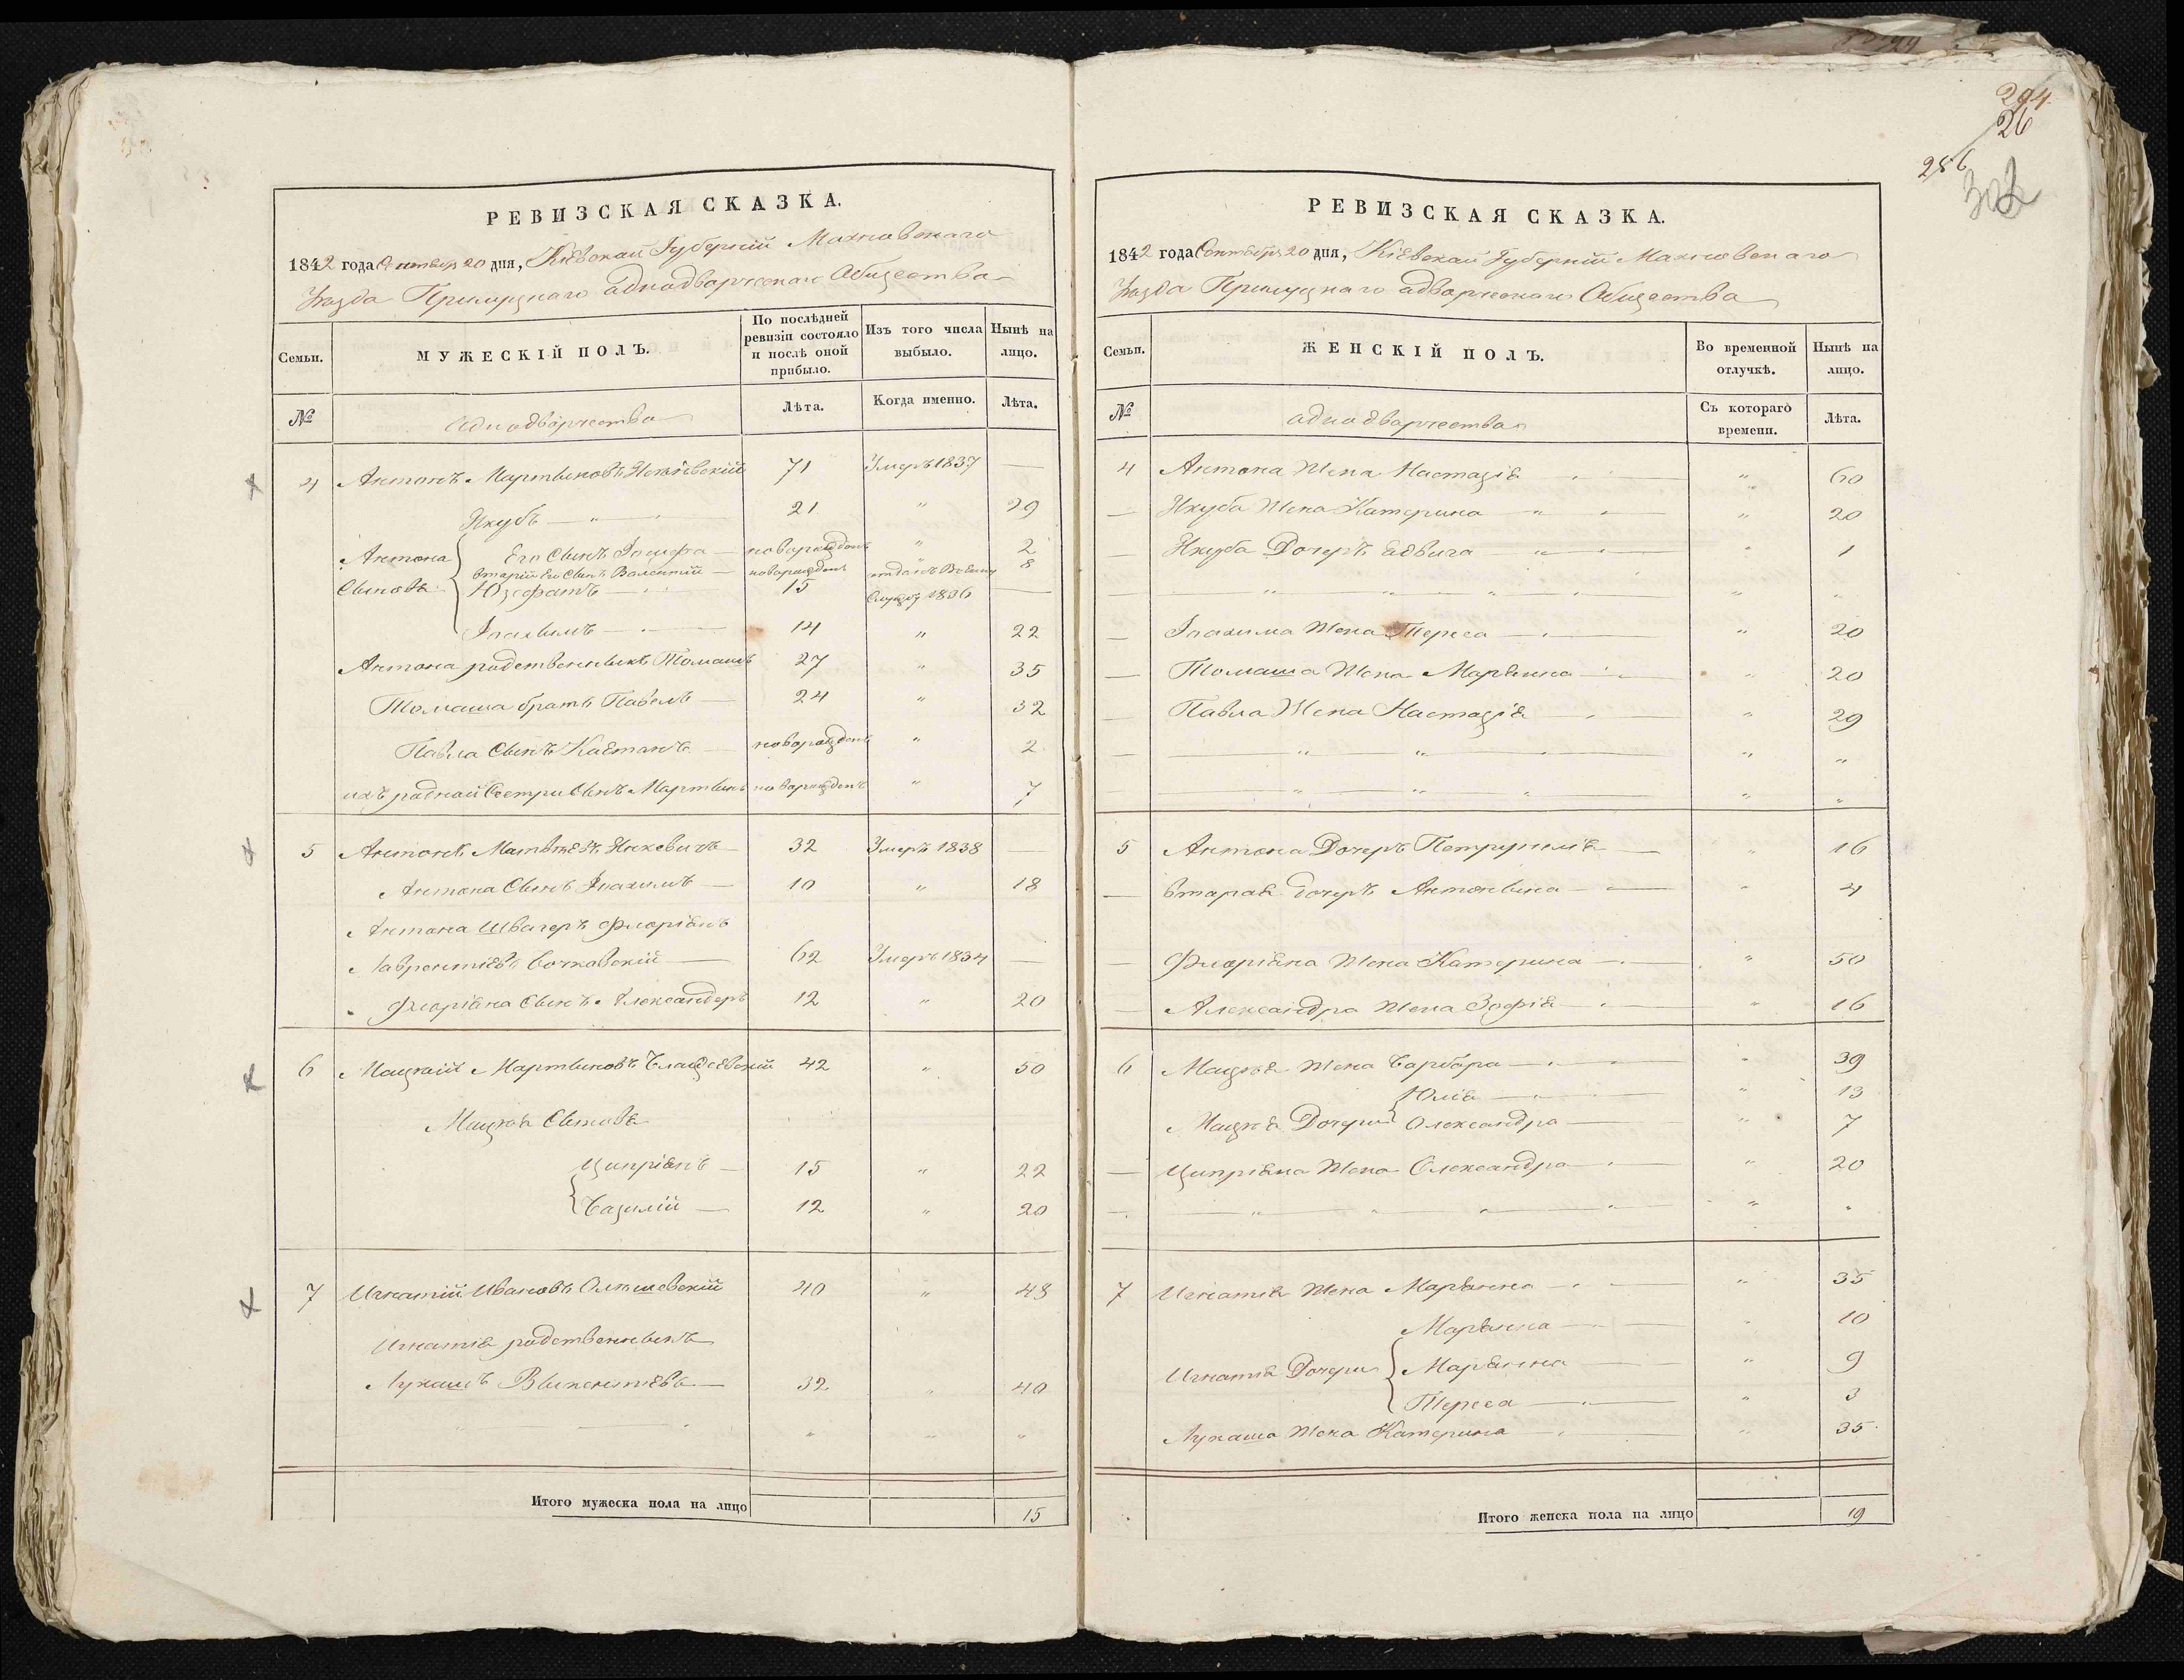 294
26
286
РЕВИЗСКАЯ СКАЗКА.
1842 года Сентября 20 дня, Кіевской Губерній Махновскаго
Уѣзда Прилуцкаго аднодворческаго Общества
Семьи.
МУЖЕСКІЙ ПОЛЪ.
По послѣдней ревизіи состояло и послѣ оной прибыло.
Изъ того числа выбыло.
Нынѣ на лицо.
№
Аднодворчества
Лѣта.
Когда именно.
Лѣта.
4 Антонъ Мартыновъ 71 Умеръ 1837 —
Якубъ — 21 " 29
Антона Сыновя
Его Сынъ Іосифъ — новорожденъ " 2
вторій Его Сынъ Валентій — новорожденъ 8
Юзефатъ — 15 отданъ Воени Службу 1836 —
Іоахимъ — 14 " 22
Антона родственникъ Томашъ 27 " 35
Томаша братъ Павелъ — 24 " 32
Павла Сынъ Каетанъ — новорожденъ " 2
ихъ родной Сестри Сынъ Мартынъ новорожденъ " 7
5 Антонъ Матвѣевъ Янкевичъ 32 Умеръ 1838 —
Антона Сынъ Іоахимъ — 10 " 18
Антона Швагеръ Флоріянъ
Лаврентіевъ Бочковскій — 62 Умеръ 1834 —
Флоріяна Сынъ Александеръ 12 " 20
6 Мацѣй Мартыновъ 42 " 50
Мацѣя Сыновя
Ципріянъ — 15 " 22
Базилій — 12 " 20
7 Игнатій Ивановъ Ольшевскій 40 " 48
Игнатія родственникъ
Лукашъ Выкентіевъ — 32 " 40
" " "
Итого мужеска пола на лицо 15
РЕВИЗСКАЯ СКАЗКА.
1842 года Сентября 20 дня, Кіевской Губерній Махновскаго
Уѣзда Прилуцкаго адворческаго Общества
Семьи.
ЖЕНСКІЙ ПОЛЪ.
Во временной отлучкѣ.
Нынѣ на лицо.
№
аднодворчества
Съ котораго времени.
Лѣта.
4 Антона Жена Настазія — " 60
— Якуба Жена Катерина — " 20
— Якуба Дочеръ Едвига — " 1
— " " " " "
— Іоахима Жена Тереса — " 20
— Томаша Жена Марянна — " 20
— Павла Жена Настазія — " 29
— " " " "
— " " " "
5 Антона Дочеръ Петрунелія — " 16
— вторая дочеръ Антонына — " 4
— Флоріяна Жена Катерина — " 50
— Александра Жена Зофія — " 16
6 Мацѣя Жена Барбара — " 39
Юлія — " 13
Мацѣя Дочери Олександра — " 7
— Ципріяна Жена Олександра — " 20
— " " " " "
7 Игнатія Жена Марянна — " 35
Марянна — " 10
Игнатія Дочери Марянна — " 9
Тереса — " 3
Лукаша Жена Катерина — " 35
Итого женска пола на лицо 19